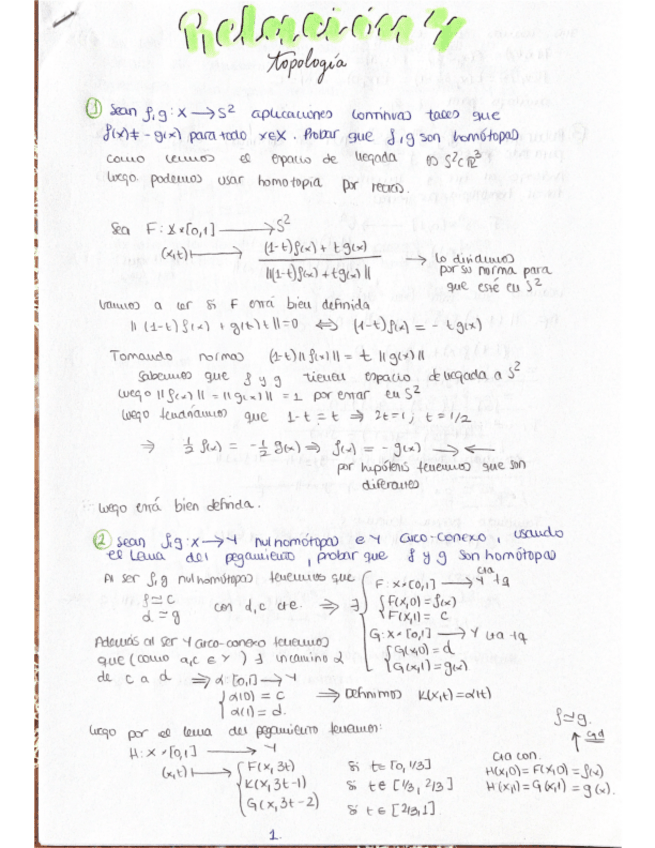 Relación 4
topología
① Sean f,g: X → S² aplicaciones continuas tales que
f(x) ≠ - g(x) para todo x∈X. Probar que f, g son homótopas
como tenemos el espacio de llegada es S²⊂ℝ³
luego podemos usar homotopia por rectas.
Sea F: X×[0,1] → S²
(x,t) ↦ (1-t)f(x) + t g(x) / ||(1-t)f(x) + t g(x)|| → lo dividimos
por su norma para
que esté en S²
vamos a ver si F está bien definida
|| (1-t) f(x) + g(x) t || = 0 ⟺ (1-t) f(x) = - t g(x)
Tomando normas (1-t) || f(x) || = t || g(x) ||
Sabemos que f y g tienen espacio de llegada a S²
luego || f(x) || = || g(x) || = 1 por estar en S²
luego tendríamos que 1-t = t ⇒ 2t=1; t = 1/2
⇒ ½ f(x) = -½ g(x) ⇒ f(x) = - g(x) →←
por hipótesis tenemos que son
diferentes
luego está bien definida.
② Sean f,g: X → Y nulhomótopas e Y arco-conexo, usando
el Lema del pegamiento, probar que f y g son homótopas
Al ser f,g nulhomótopas tenemos que
f ≃ c
d ≃ g
con d,c cte. ⇒ ∃
F: X×[0,1] → Y cta tq
F(x,0) = f(x)
F(x,1) = c
G: X×[0,1] → Y cta tq
G(x,0) = d
G(x,1) = g(x)
Además al ser Y arco-conexo tenemos
que (como d,c ∈ Y) ∃ un camino α
de c a d ⇒ α: [0,1] → Y
α(0) = c
α(1) = d.
⇒ Definimos K(x,t) = α(t)
luego por el lema del pegamiento tenemos:
H: X×[0,1] → Y
(x,t) ↦
F(x, 3t) si t∈[0, 1/3]
K(x, 3t-1) si t∈[1/3, 2/3]
G(x, 3t-2) si t∈[2/3, 1].
f ≃ g.
↑ cqd
cta con.
H(x,0) = F(x,0) = f(x)
H(x,1) = G(x,1) = g(x).
1.